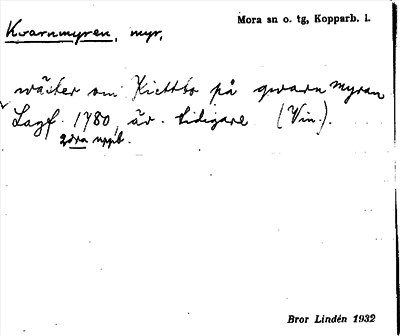 Kvarnmyren, myr,
Mora sn o. tg, Kopparb. l.
wäster om Kiettbo på qwarn myran
Lagf. 1780, äv. tidigare (Vin.).
2dra uppb.
Bror Lindén 1932